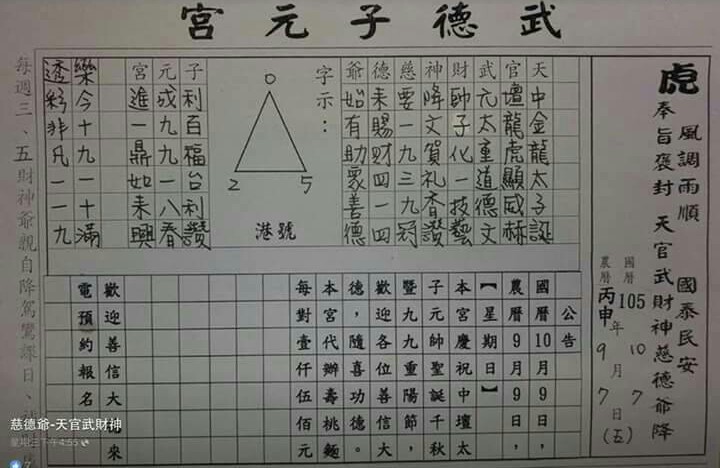 武德子元宮
虎
風調雨順　國泰民安
奉旨褒封　天官武財神慈德爺降
國曆105年10月7日(五)
農曆丙申年9月7日
天中金龍太子誕
官壇龍虎顯威赫
武元太童道德文
財帥子化一技藝
神降文賀礼香讚
慈要一九三九冠
德未賜财四一四
爺始有助眾善德
字示：
0
2
5
港號
子利百福台利讚
元成九九一八春
宮進一鼎如未興
樂今十九一十滿
透彩非凡一一九
公告
國曆10月9日，
農曆9月9日
【星期日】
本宮慶祝中壇太
子元帥聖誕千秋
暨九九重陽節，
歡迎各位善信大
德，隨喜功德。
本宮代辦壽桃麵
每對壹仟伍佰元
歡迎善信大來
電預約報名
每週三、五財神爺親自降駕鸞課日、
慈德爺-天官武財神
星期三下午4:55